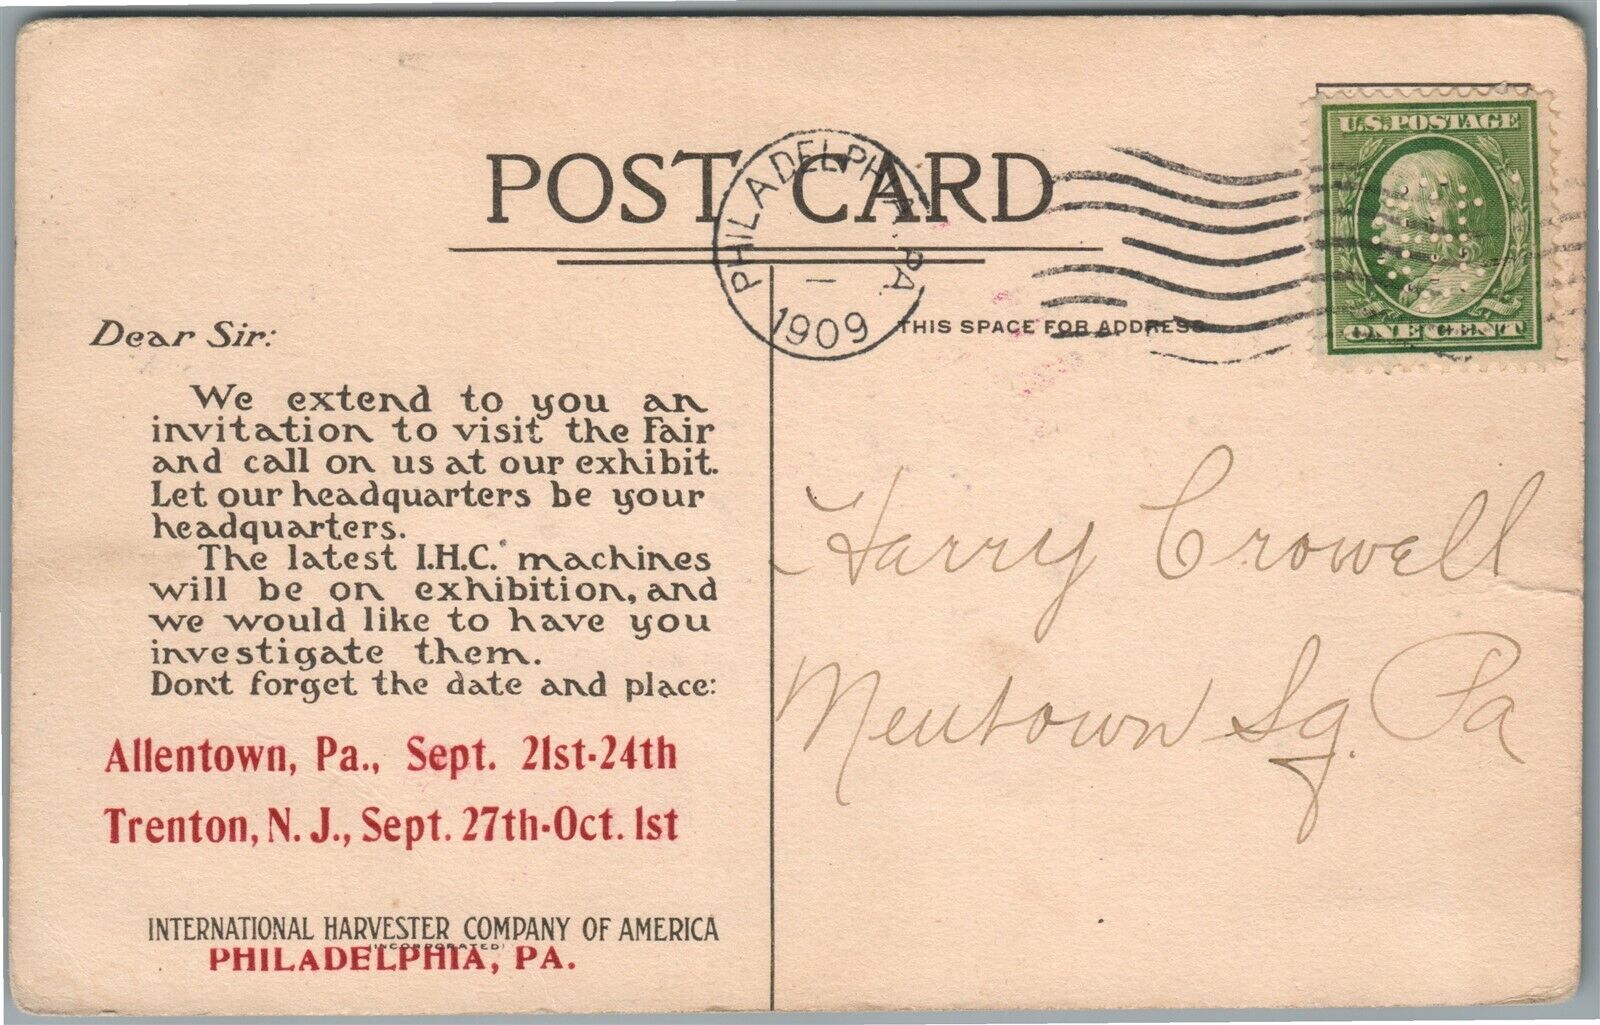 POST CARD
PHILADELPHIA. PA.
1909
U.S. POSTAGE
ONE CENT
THIS SPACE FOR ADDRESS
Dear Sir:
We extend to you an
invitation to visit the Fair
and call on us at our exhibit.
Let our headquarters be your
headquarters.
The latest I.H.C. machines
will be on exhibition, and
we would like to have you
investigate them.
Don't forget the date and place:
Allentown, Pa., Sept. 21st-24th
Trenton, N. J., Sept. 27th-Oct. 1st
INTERNATIONAL HARVESTER COMPANY OF AMERICA
(INCORPORATED)
PHILADELPHIA, PA.
Harry Crowell
Newtown Sq. Pa